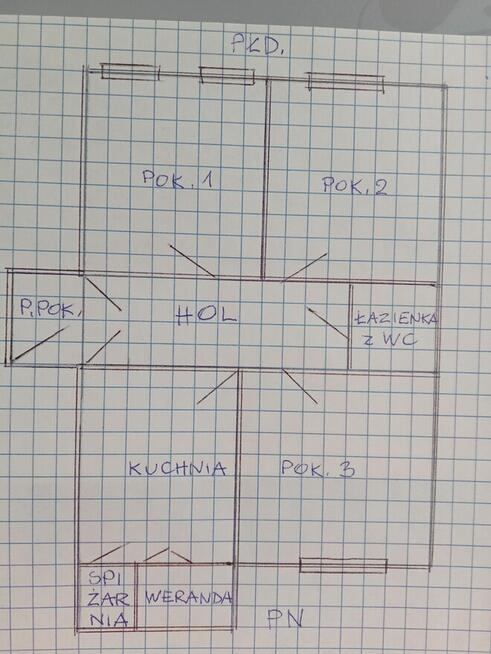 PŁD.
POK. 1
POK. 2
P. POK.
HOL
ŁAZIENKA
Z WC
KUCHNIA
POK. 3
SPI
ŻAR
NIA
WERANDA
PN